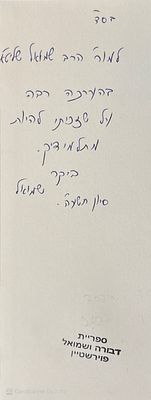 בסד
למו"ר הרב שמואל שליט"א
בהערכה רבה
ועל שזכיתי להיות
מתלמידיך.
ביקר
שמואל
סיון תשע"ה.
ספריית
דבורה ושמואל
פוירשטיין